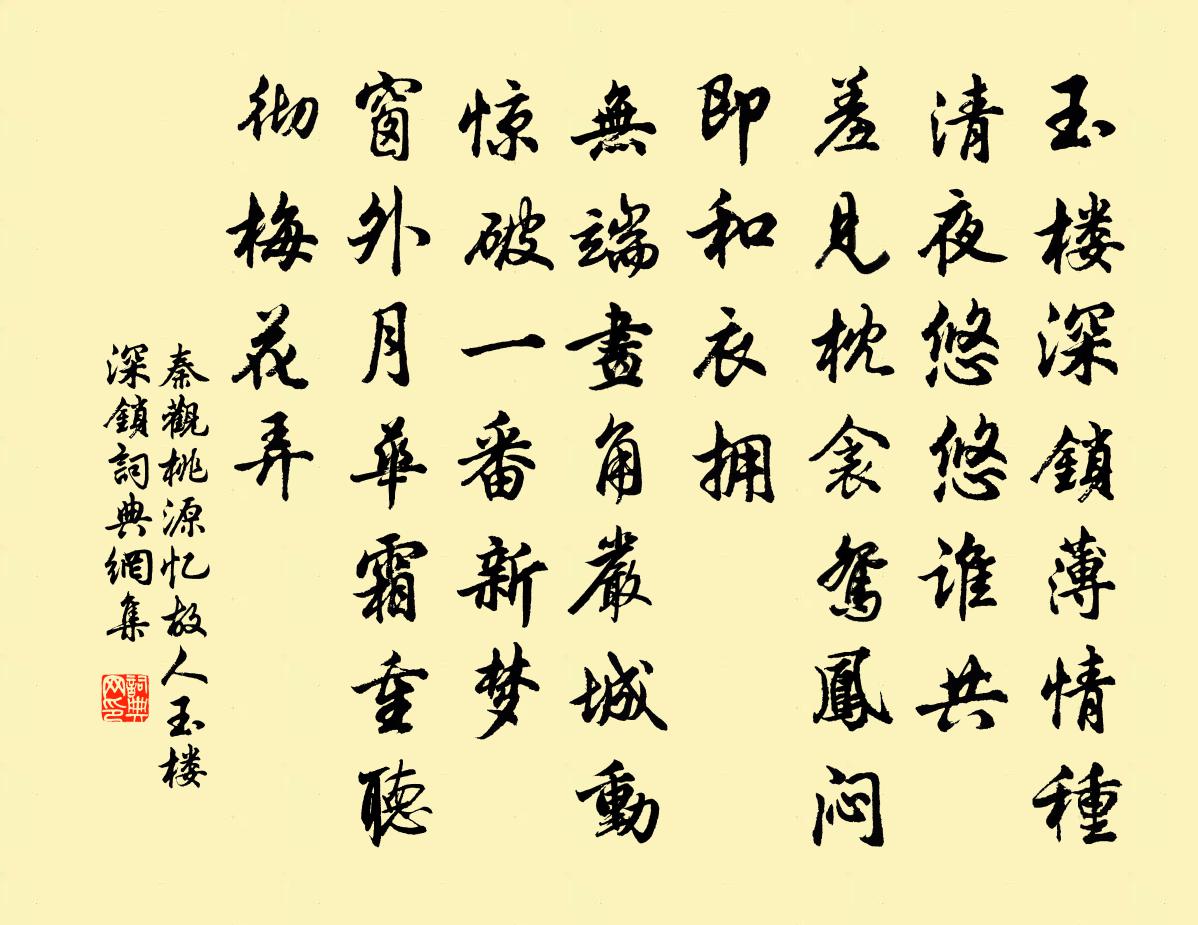 玉楼深鎖薄情種
清夜悠悠谁共
羞見枕衾鸳鳳
闷
即和衣拥
無端畫角嚴城動
惊破一番新梦
窗外月華霜重
聽
彻梅花弄
秦觀桃源忆故人玉楼
深鎖詞典網集
詞典
网印